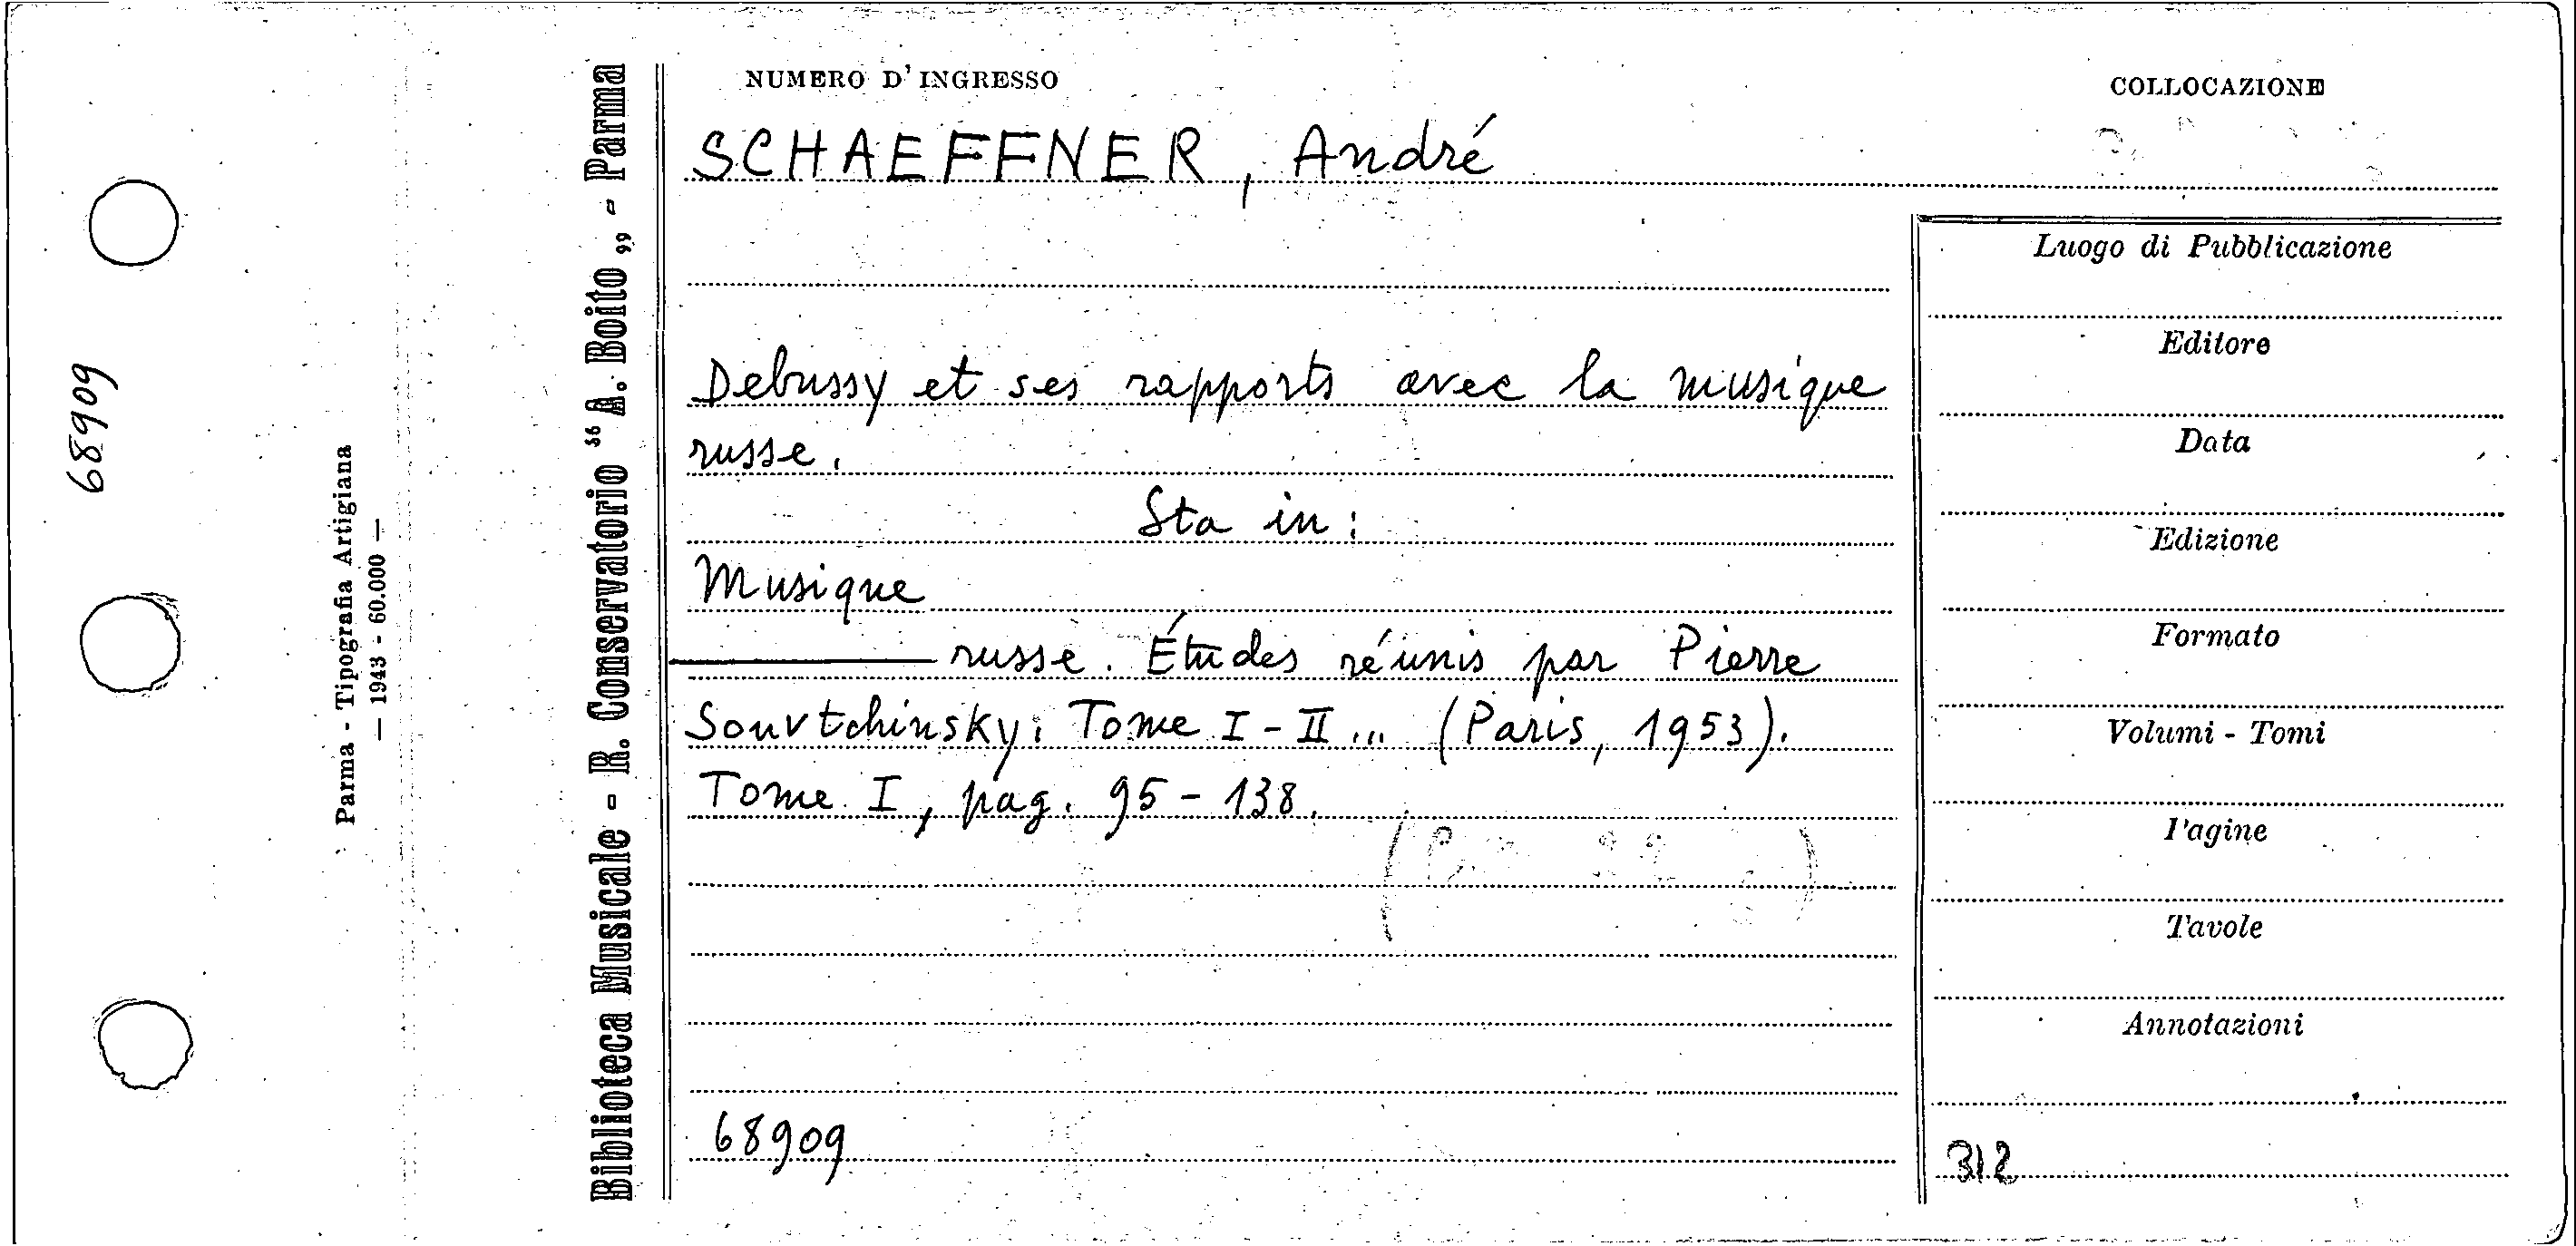 NUMERO D'INGRESSO
COLLOCAZIONE
SCHAEFFNER, André
Debussy et ses rapports avec la musique
russe.
Sta in:
Musique
russe. Études réunis par Pierre
Souvtchinsky. Tome I - II ... (Paris, 1953).
Tome I, pag. 95 - 138.
68909
Luogo di Pubblicazione
Editore
Data
Edizione
Formato
Volumi - Tomi
Pagine
Tavole
Annotazioni
312
Biblioteca Musicale - R. Conservatorio "A. Boito„ - Parma
Parma - Tipografia Artigiana
— 1943 - 60.000 —
68909